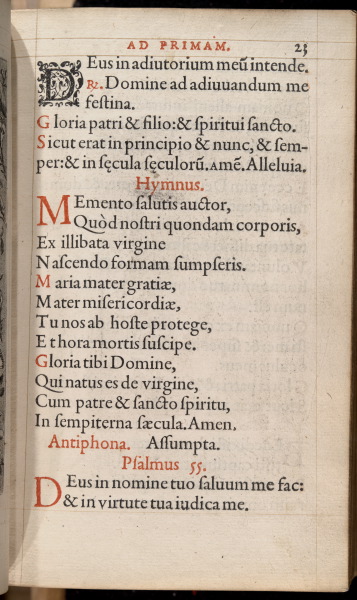 AD PRIMAM. 23
DEus in adiutorium meū intende.
℞. Domine ad adiuuandum me
festina.
Gloria patri & filio: & spiritui sancto.
Sicut erat in principio & nunc, & sem-
per: & in sęcula sęculorū. AMĒ. Alleluia.
Hymnus.
MEmento salutis auctor,
Quòd nostri quondam corporis,
Ex illibata virgine
Nascendo formam sumpseris.
Maria mater gratiæ,
Mater misericordiæ,
Tu nos ab hoste protege,
Et hora mortis suscipe.
Gloria tibi Domine,
Qui natus es de virgine,
Cum patre & sancto spiritu,
In sempiterna sæcula. Amen.
Antiphona. Assumpta.
Psalmus 55.
DEus in nomine tuo saluum me fac:
& in virtute tua iudica me.